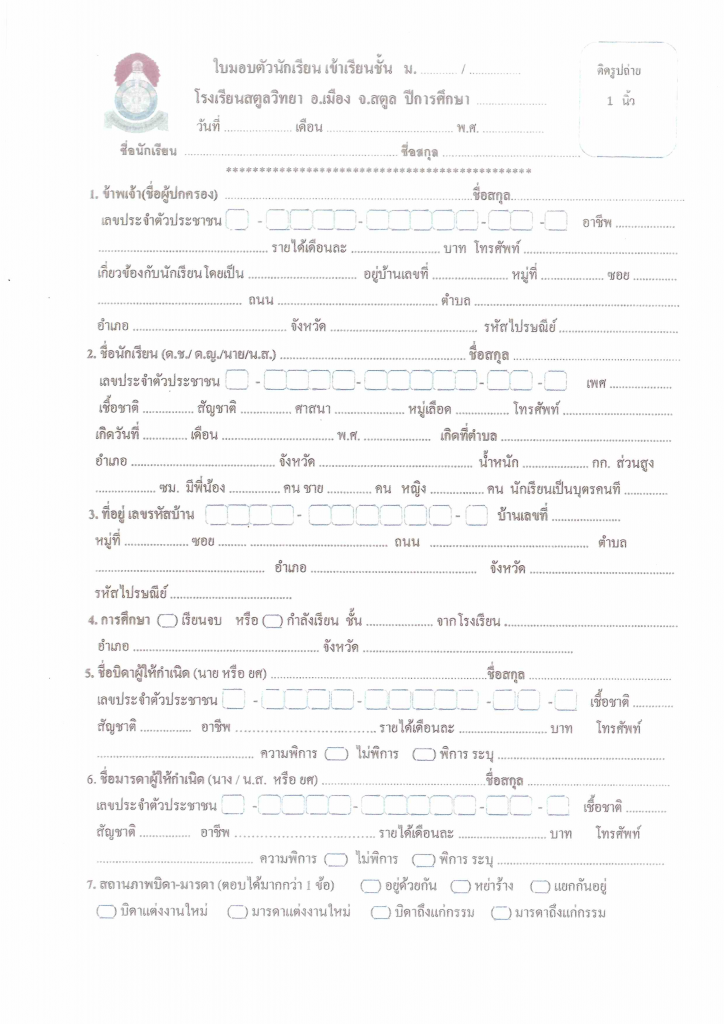 ใบมอบตัวนักเรียน เข้าเรียนชั้น ม. ............ / ................
ติดรูปถ่าย
1 นิ้ว
โรงเรียนสตูลวิทยา อ.เมือง จ.สตูล ปีการศึกษา ......................
วันที่ ...................... เดือน .......................................... พ.ศ. ....................
ชื่อนักเรียน .................................................................. ชื่อสกุล ..........................................
**********************************************
1. ข้าพเจ้า(ชื่อผู้ปกครอง) .................................................................. ชื่อสกุล..........................................
เลขประจำตัวประชาชน - - - - อาชีพ ..................
.................................................. รายได้เดือนละ .......................... บาท โทรศัพท์ ..........................................
เกี่ยวข้องกับนักเรียนโดยเป็น ................................ อยู่บ้านเลขที่ ...................... หมู่ที่ .................. ซอย .............
.......................................... ถนน .......................................... ตำบล ..................................................
อำเภอ .......................................... จังหวัด .......................................... รหัสไปรษณีย์ ..................................
2. ชื่อนักเรียน (ด.ช./ ด.ญ./นาย/น.ส.) .................................................. ชื่อสกุล ..........................................
เลขประจำตัวประชาชน - - - - เพศ ..................
เชื้อชาติ ............. สัญชาติ ............. ศาสนา .................. หมู่เลือด ............. โทรศัพท์ ..............................
เกิดวันที่ ............. เดือน .............................. พ.ศ. .................. เกิดที่ตำบล ..........................................
อำเภอ .......................................... จังหวัด .......................................... น้ำหนัก .................. กก. ส่วนสูง
.................. ซม. มีพี่น้อง ............. คน ชาย ............. คน หญิง ............. คน นักเรียนเป็นบุตรคนที่ .............
3. ที่อยู่ เลขรหัสบ้าน - - บ้านเลขที่ ..................
หมู่ที่ .................. ซอย ........ .................................. ถนน .......................................... ตำบล
.................................................. อำเภอ .......................................... จังหวัด ..........................................
รหัสไปรษณีย์ ..................................
4. การศึกษา เรียนจบ หรือ กำลังเรียน ชั้น .................. จากโรงเรียน ..........................................
อำเภอ .................................................. จังหวัด ..................................................
5. ชื่อบิดาผู้ให้กำเนิด (นาย หรือ ยศ) ..................................................ชื่อสกุล ..........................................
เลขประจำตัวประชาชน - - - - เชื้อชาติ .............
สัญชาติ ............. อาชีพ .................................. รายได้เดือนละ .......................... บาท โทรศัพท์
.......................................... ความพิการ ไม่พิการ พิการ ระบุ ..........................................
6. ชื่อมารดาผู้ให้กำเนิด (นาง / น.ส. หรือ ยศ) .......................................... ชื่อสกุล ..........................................
เลขประจำตัวประชาชน - - - - เชื้อชาติ .............
สัญชาติ ............. อาชีพ .................................. รายได้เดือนละ .......................... บาท โทรศัพท์
.......................................... ความพิการ ไม่พิการ พิการ ระบุ ..........................................
7. สถานภาพบิดา-มารดา (ตอบได้มากกว่า 1 ข้อ) อยู่ด้วยกัน หย่าร้าง แยกกันอยู่
บิดาแต่งงานใหม่ มารดาแต่งงานใหม่ บิดาถึงแก่กรรม มารดาถึงแก่กรรม